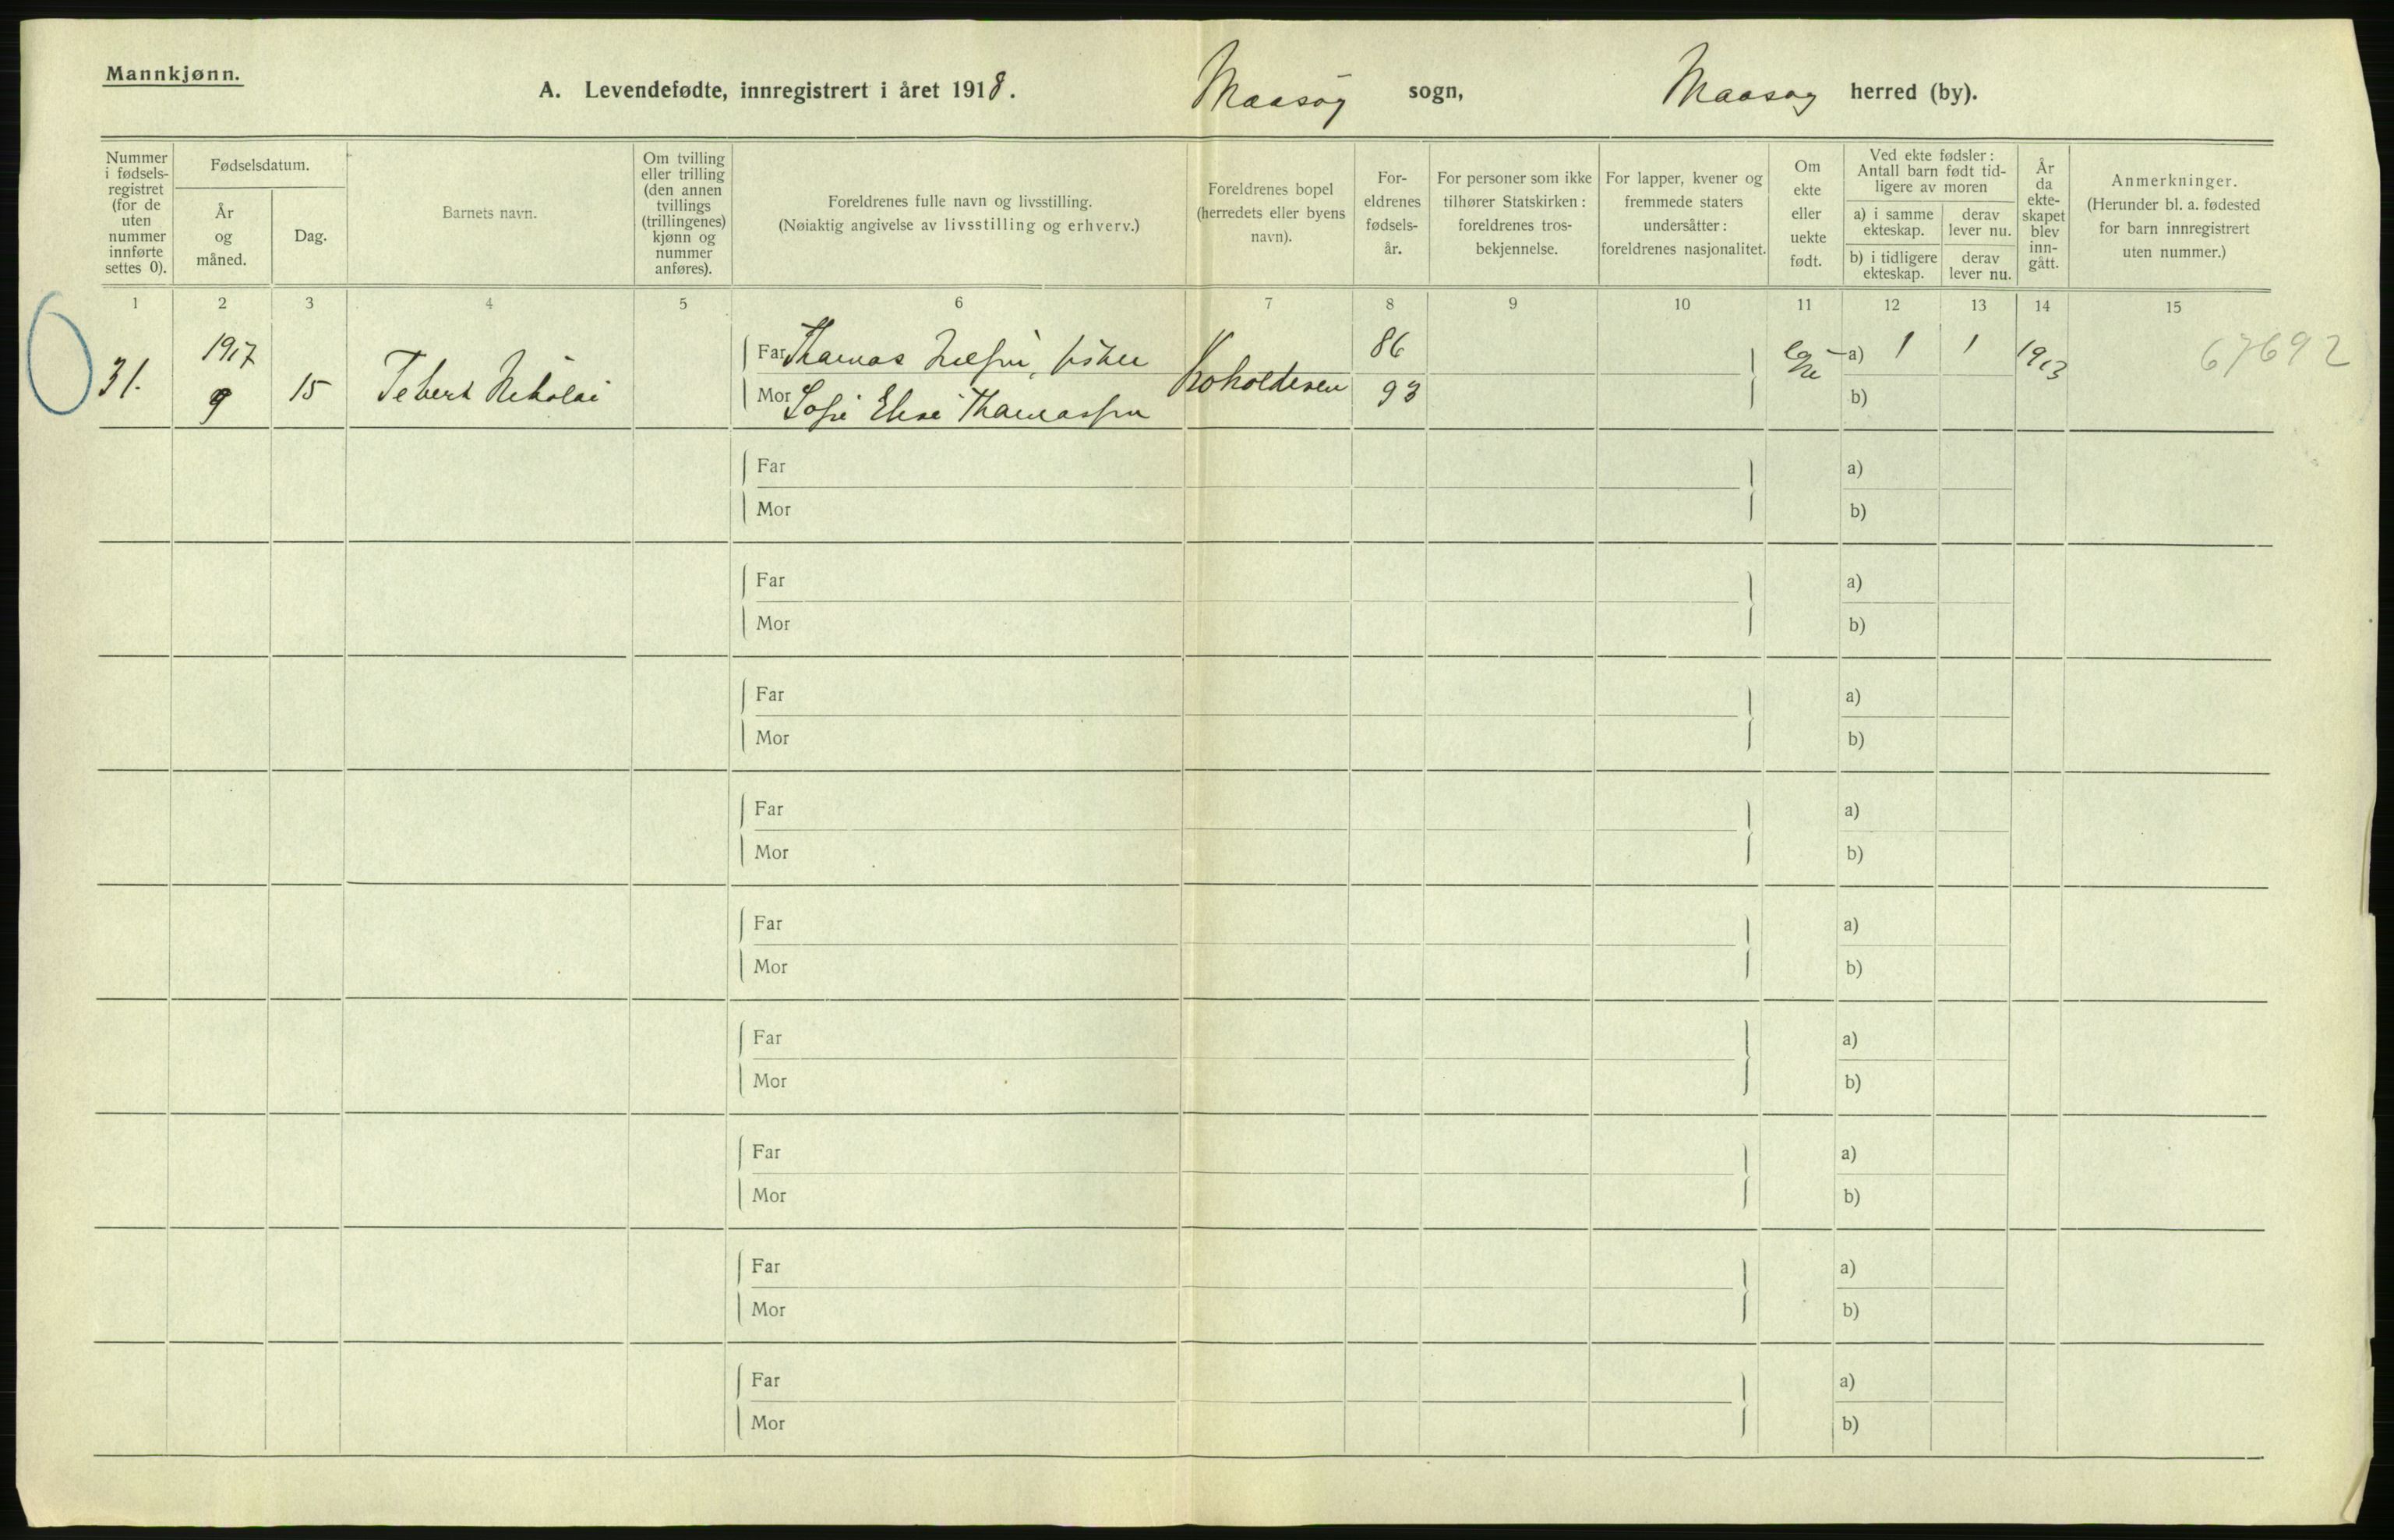 Mannkjønn.
A. Levendefødte, innregistrert i året 1918.
Maasøy sogn,
Maasøy herred (by).
Nummer i fødsels-registret (for de uten nummer innførte settes 0).
Fødselsdatum.
År og måned.
Dag.
Barnets navn.
Om tvilling eller trilling (den annen tvillings (trillingenes) kjønn og nummer anføres).
Foreldrenes fulle navn og livsstilling.
(Nøiaktig angivelse av livsstilling og erhverv.)
Foreldrenes bopel (herredets eller byens navn).
For-eldrenes fødsels-år.
For personer som ikke tilhører Statskirken: foreldrenes tros-bekjennelse.
For lapper, kvener og fremmede staters undersåtter: foreldrenes nasjonalitet.
Om ekte eller uekte født.
Ved ekte fødsler: Antall barn født tid-ligere av moren
a) i samme ekteskap.
derav lever nu.
b) i tidligere ekteskap.
derav lever nu.
År da ekte-skapet blev inn-gått.
Anmerkninger.
(Herunder bl. a. fødested for barn innregistrert uten nummer.)
1 2 3 4 5 6 7 8 9 10 11 12 13 14 15
31. 1917 9 15 Tebert Nikolai
Far Thomas fisker 86
Mor Sofie Elise Thomassen 93
a) 1 1 1913 67692
b)
Far a)
Mor b)
Far a)
Mor b)
Far a)
Mor b)
Far a)
Mor b)
Far a)
Mor b)
Far a)
Mor b)
Far a)
Mor b)
Far a)
Mor b)
Far a)
Mor b)